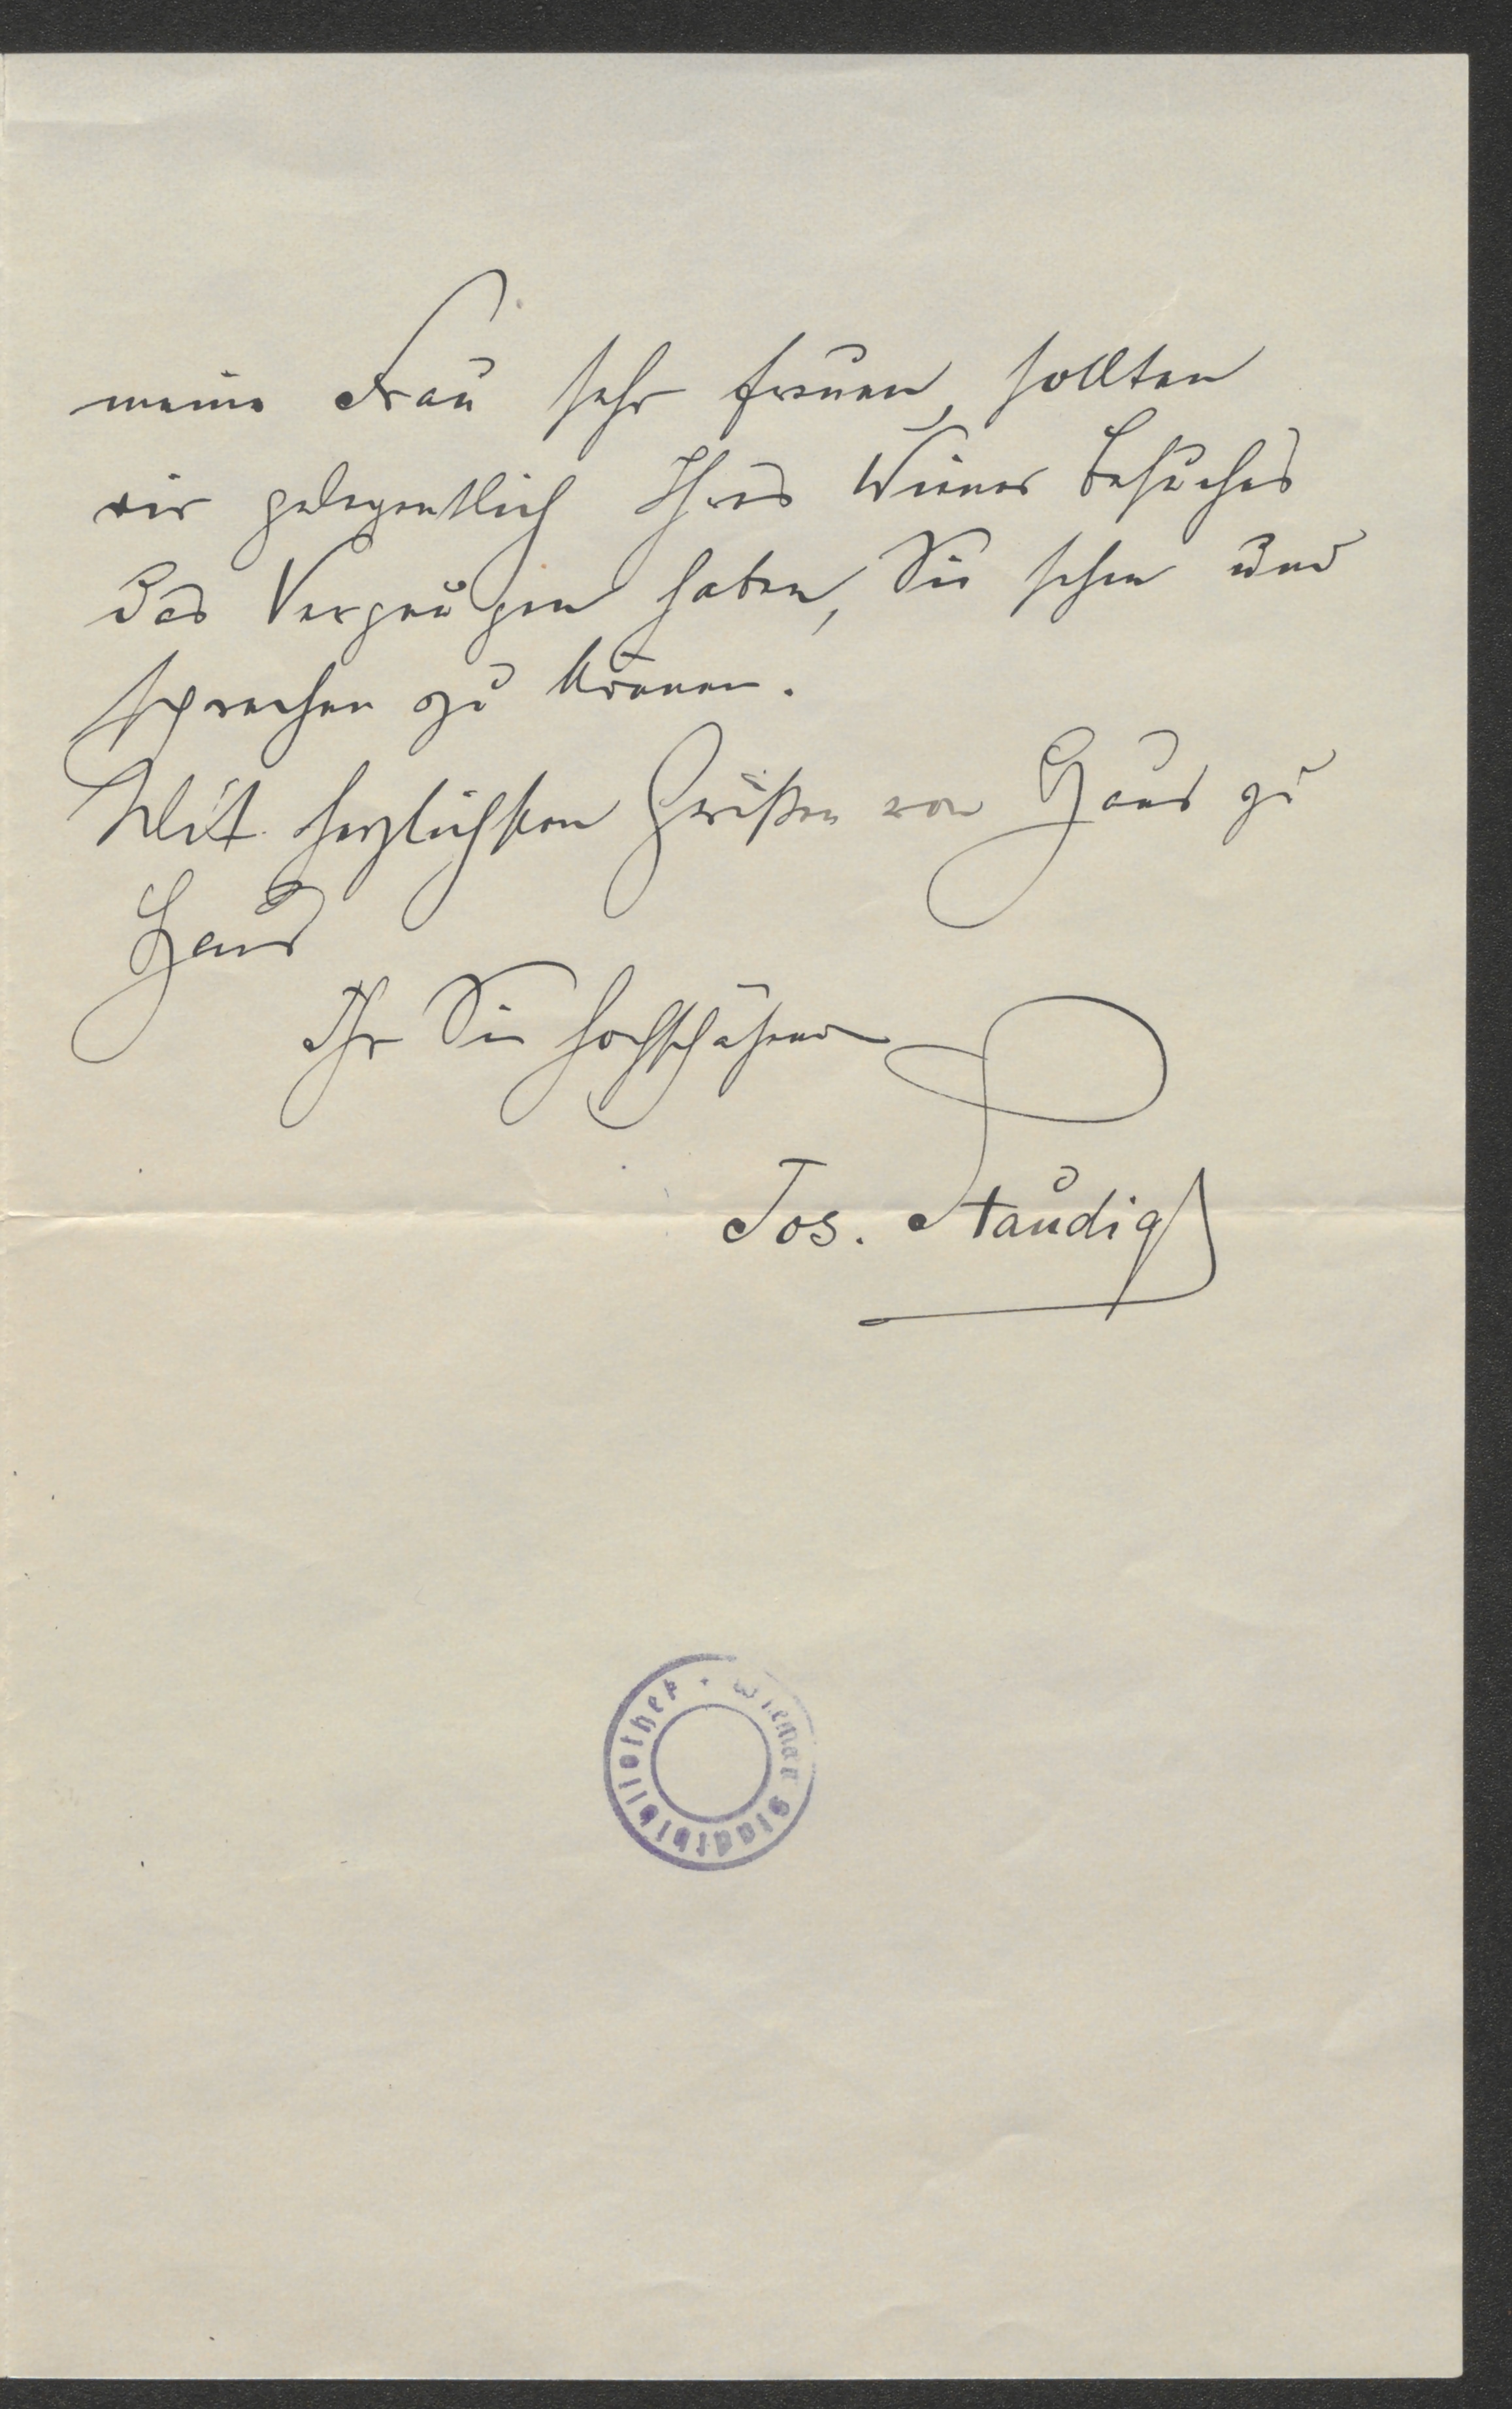 meine Frau sehr freuen, sollten
wir gelegentlich Ihres Wiener Besuches
das Vergnügen haben, Sie sehen und
sprechen zu können.
Mit herzlichsten Grüßen von Haus zu
Haus
Ihr Sie hochschätzender
Jos. Staudigl
Wiener Stadtbibliothek